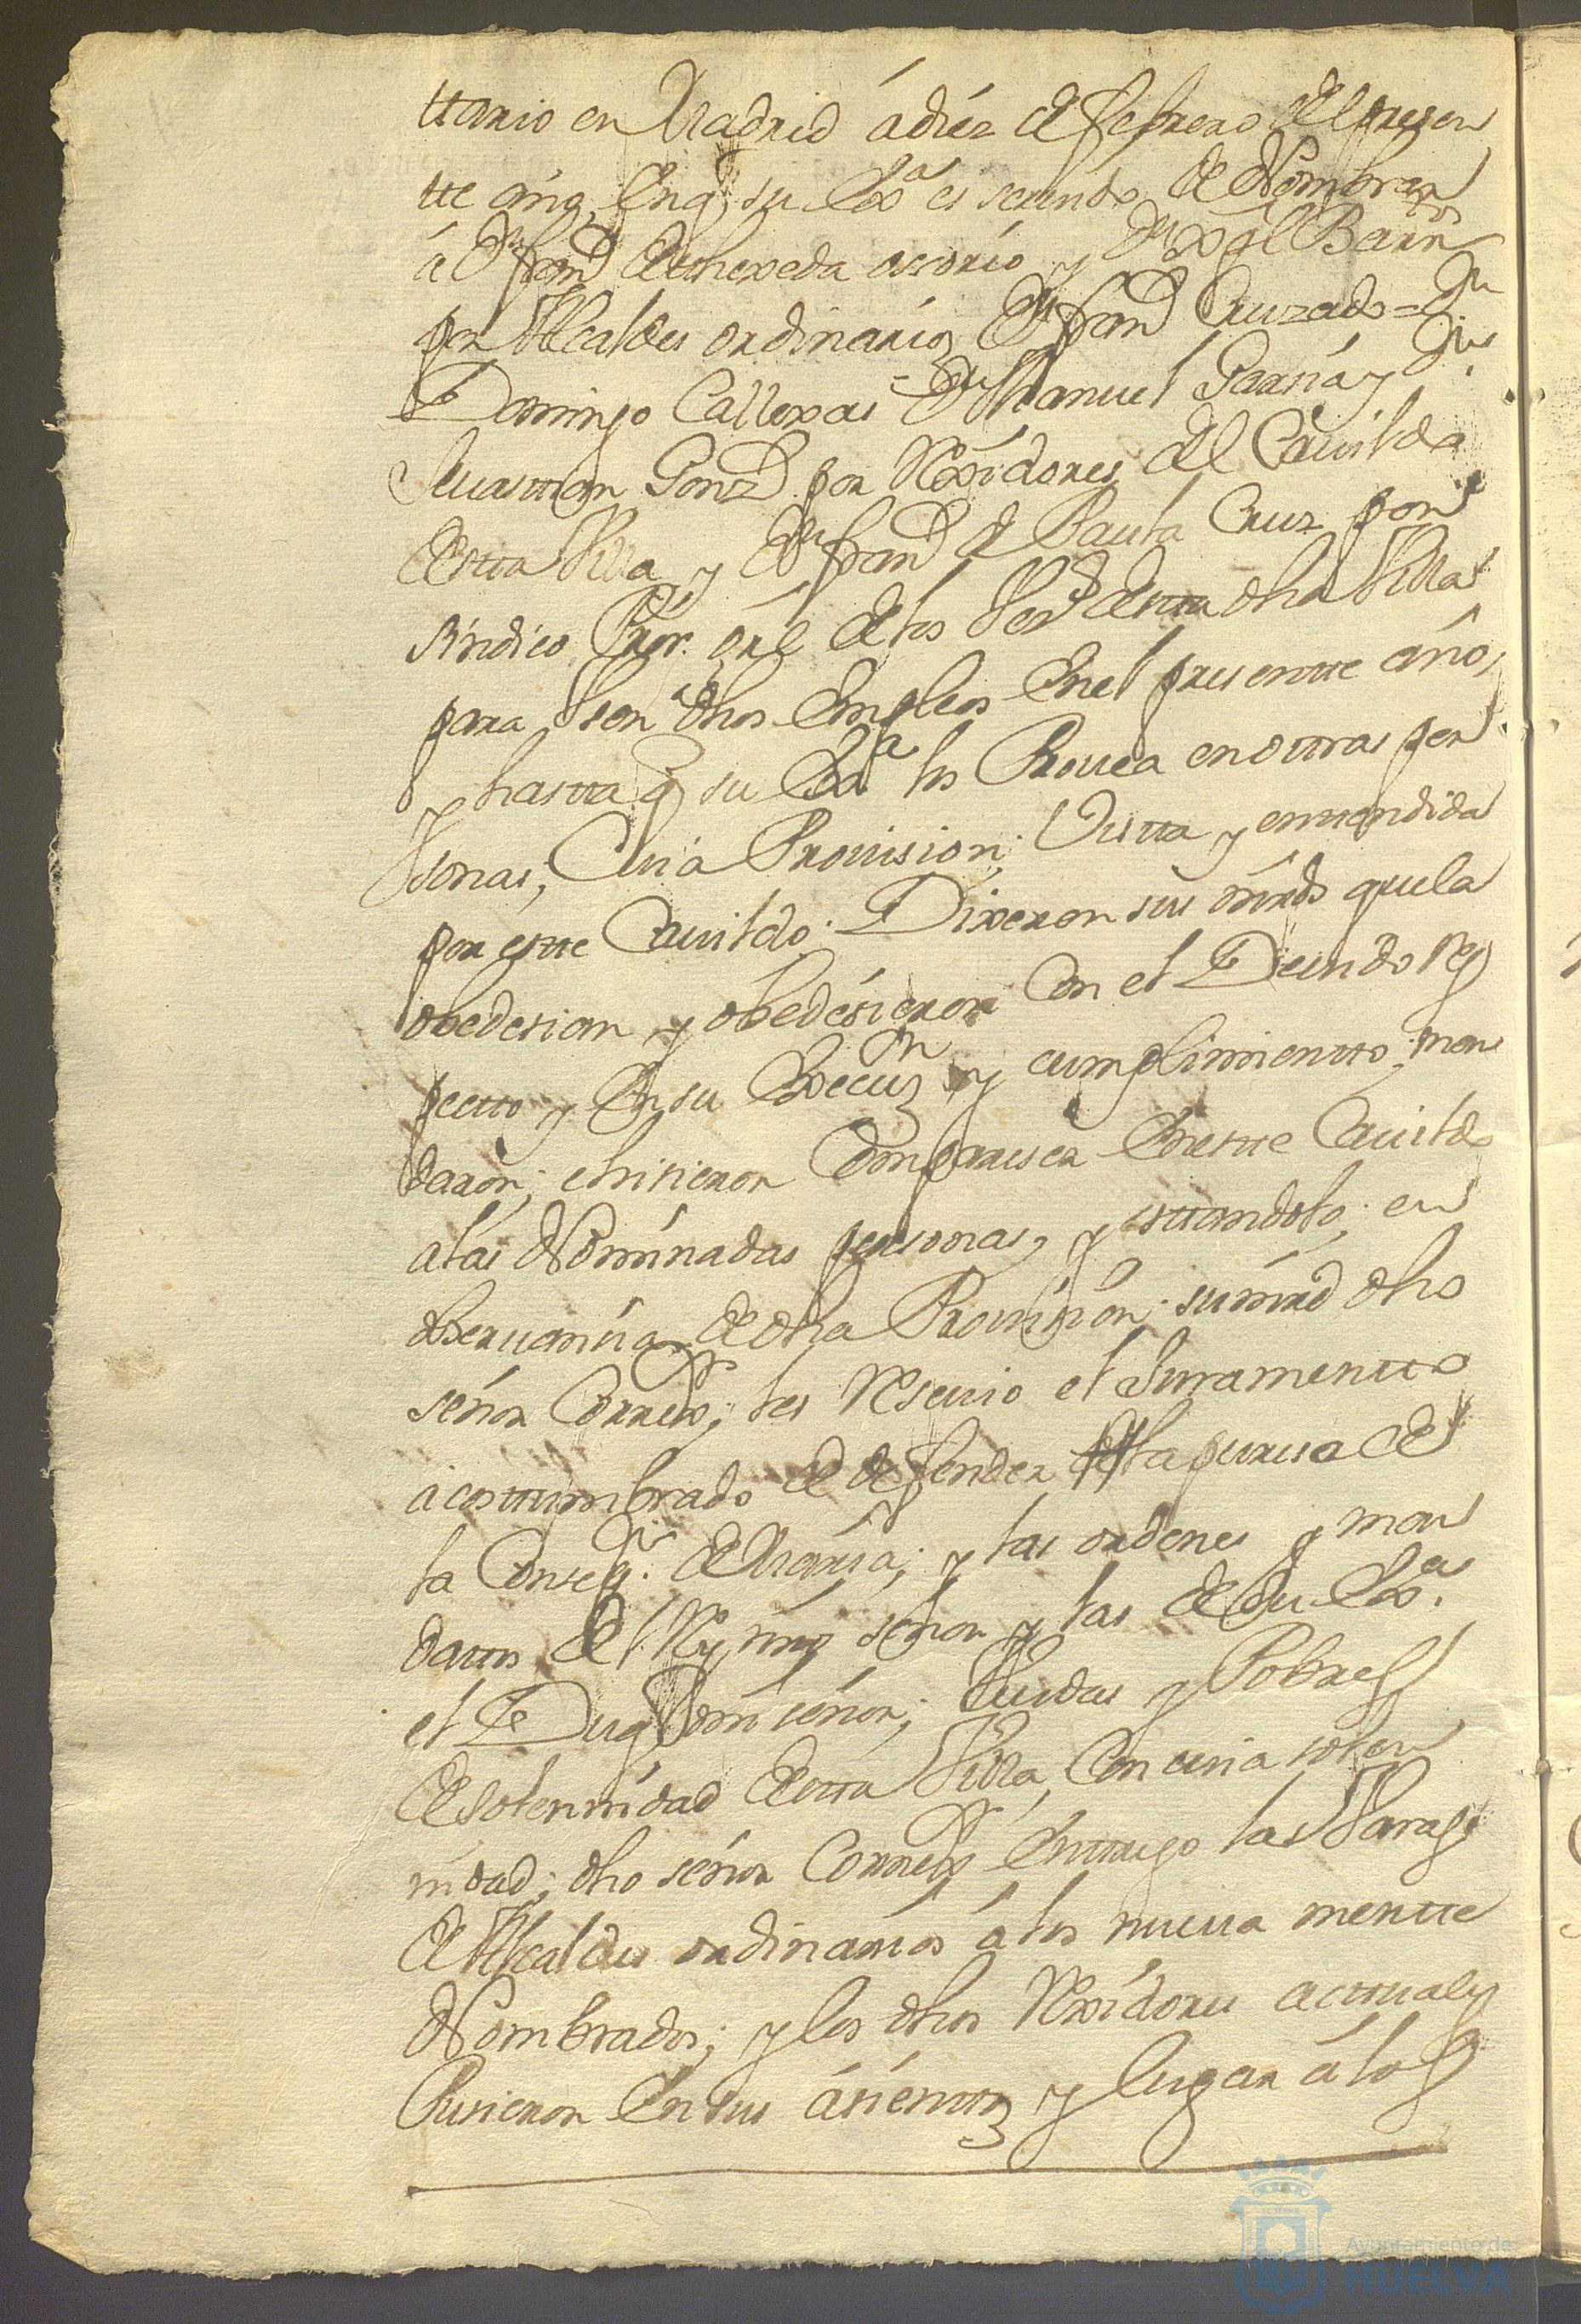 ttario en Madrid á diéz de febrero del presen
tte año, En q su Exa es seruido de Nombrar
á Dn franco de thexeda ossorio y Dn Barrn
por Alcaldes ordinarios Dn franco Cruzado = Dn
Domingo Callexas = Dn Manuel Garsia y Dn
Seuasttian Gonz por Rexidores del Cauildo
desta Villa y Dn franco de Paula Cruz por
sindico Pror. Grl de los Vesos desta dha Villa
para Vsen dhos Empleos En el presentte año,
y hasta q su Exa los Prouea en ottras per
sonas; Cuia Prouision; Vistta y enttendida
por estte Cauildo; Dixeron sus mrds que la
obedesian y obedésieron Con el Deuido res
pectto y En su Execuon y cumplimientto; man
daron; e hisieron Compareser En estte Cauildo
a las Nominadas personas, y esttandolo; en
obseruansia de dha Prouision; su mrd dho
señor Correxr; les Resiuio el Juramentto
acosttumbrado de defender la puresa de
la Consepn. de Maria; y las ordenes y man
dattos del Rey nro señor y las de Su Exa.
el Duq mi señor; Viudas y Pobres
de solemnidad desta Villa, Con cuia solem
nidad; dho señor Correxr Enttrego las Varas
de Alcaldes ordinarios á los nueua mentte
Nombrados; y los dhos Rexidores acttuales
Pusieron En sus asienttos y lugar á los
Ayuntamiento de
HUELVA